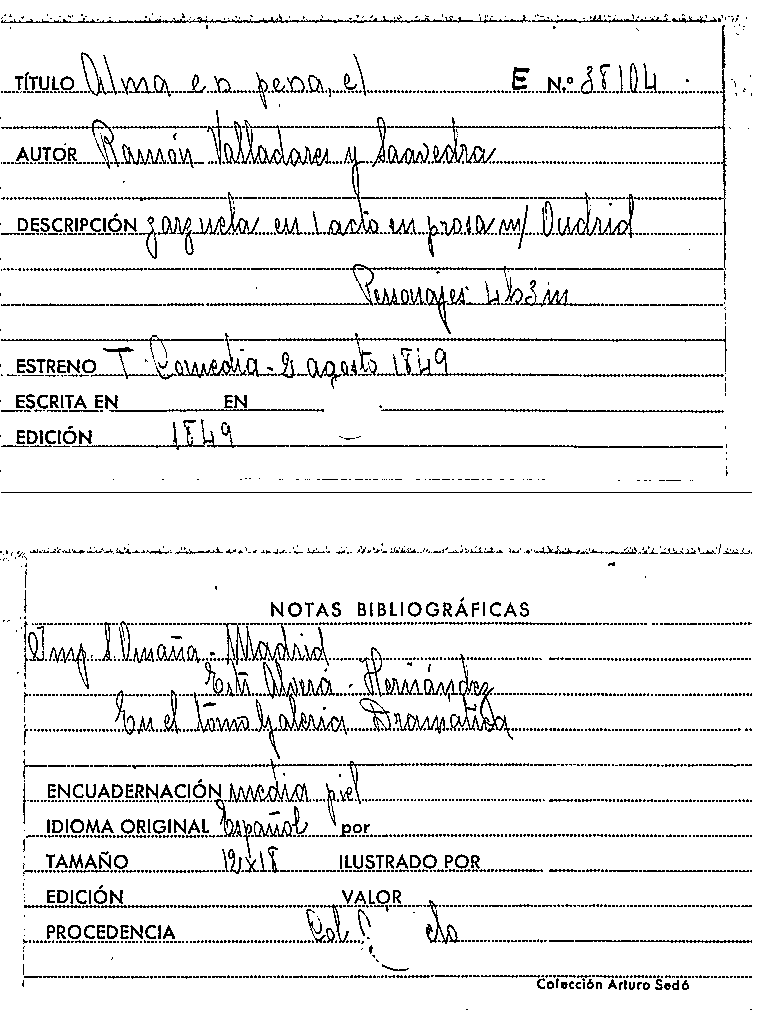 TÍTULO Alma en pena, el E N.º 38104
AUTOR Ramón Valladares y Saavedra
DESCRIPCIÓN zarzuela en 1 acto en prosa m/ Oudrid
Personajes 4h 3m
ESTRENO T Comedia - 2 agosto 1849
ESCRITA EN EN
EDICIÓN 1849
NOTAS BIBLIOGRÁFICAS
Imp. S Omaña - Madrid
Estr Alverá - Hernández
En el tomo Galeria Dramatica
ENCUADERNACIÓN media piel
IDIOMA ORIGINAL Español por
TAMAÑO 12x18 ILUSTRADO POR
EDICIÓN VALOR
PROCEDENCIA Col.
Colección Arturo Sedó